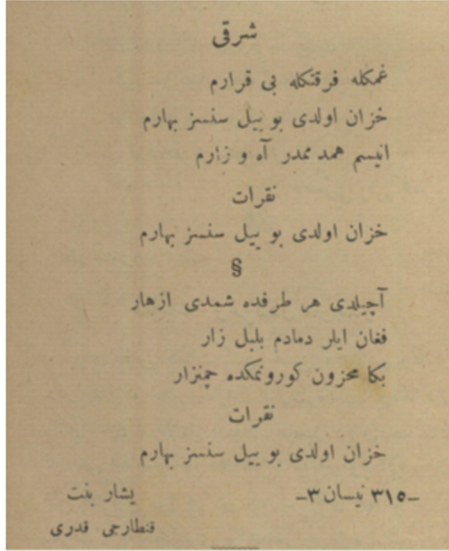 شرقی
غمكله فرقتكله بی قرارم
خزان اولدی بو ییل سنسز بهارم
انیسم همدممدر آه و زارم
نقرات
خزان اولدی بو ییل سنسز بهارم
§
آچیلدی هر طرفده شمدی ازهار
فغان ایلر دمادم بلبل زار
بكا محزون كورونمكده چمنزار
نقرات
خزان اولدی بو ییل سنسز بهارم
-٣١٥ نیسان ٣-
یشار بنت
قنطارجی قدری